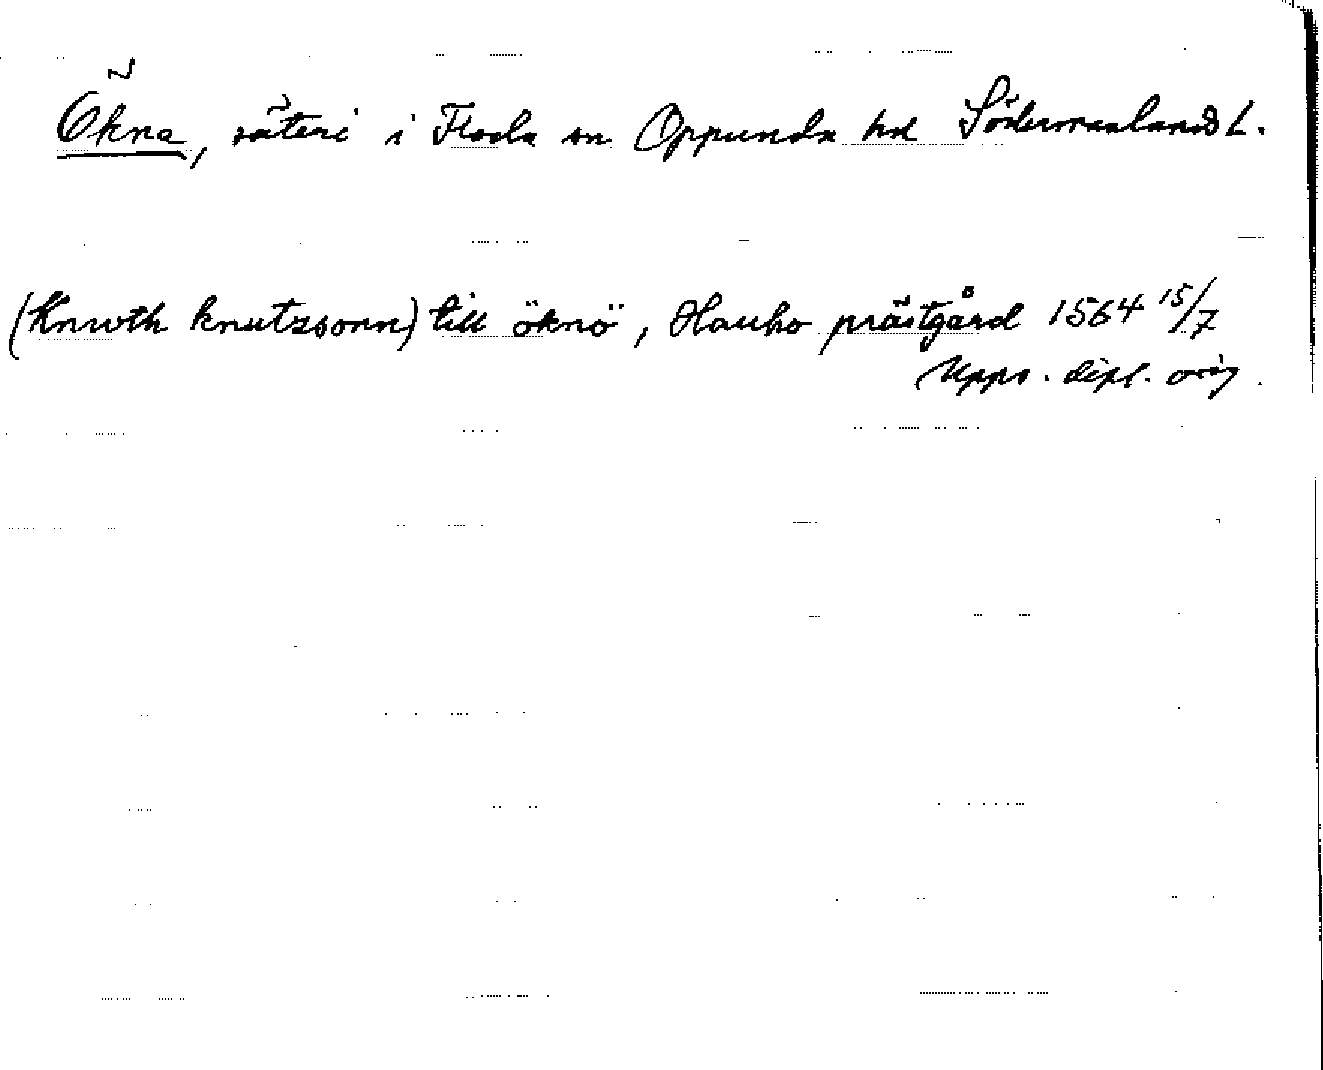 Ökna, säteri i Floda sn Oppunda hd Södermanlands L.
(Knwth knutzsonn) till öknö, Hauho prästgård 1564 15/7
Upps. dipl. orig.